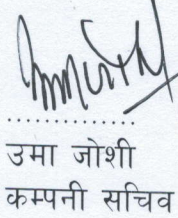 ..............
उमा जोशी
कम्पनी सचिव